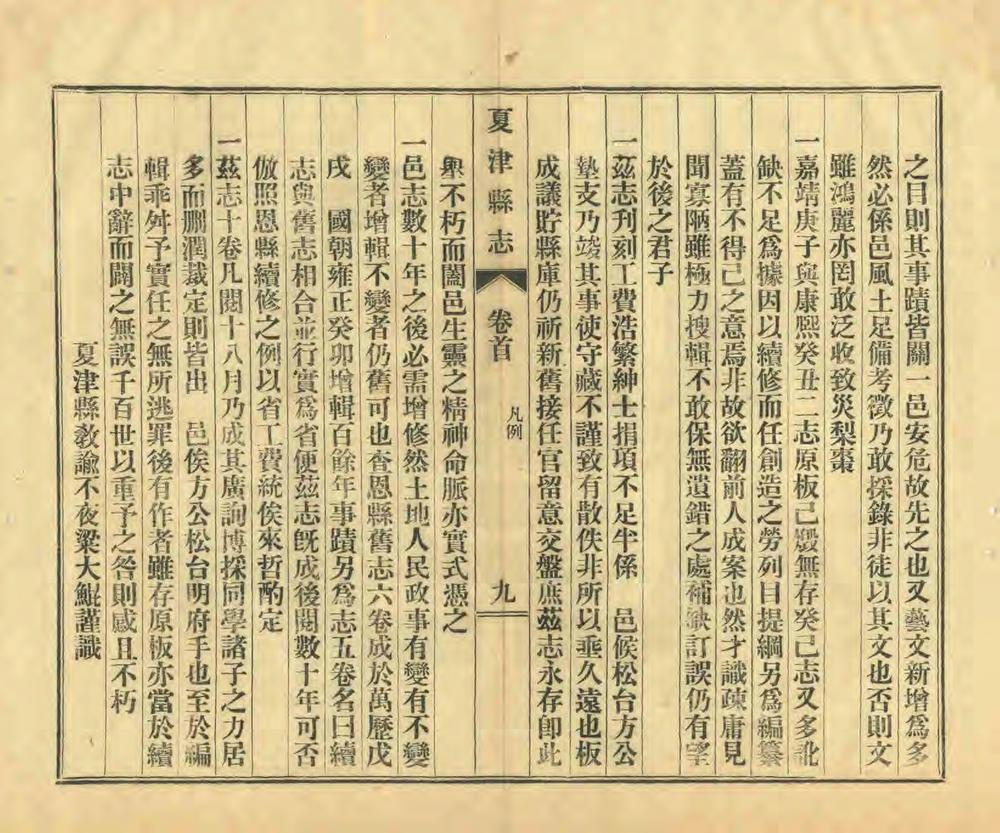 之目則其事蹟皆關一邑安危故先之也又藝文新增爲多
然必係邑風土足備考徵乃敢採錄非徒以其文也否則文
雖鴻麗亦罔敢泛收致災梨棗
一嘉靖庚子與康熙癸丑二志原板已燬無存癸已志又多訛
缺不足爲據因以續修而任創造之勞列目提綱另爲編纂
蓋有不得已之意焉非故欲翻前人成案也然才識疎庸見
聞寡陋雖極力搜輯不敢保無遺錯之處補缺訂誤仍有望
於後之君子
一茲志刊刻工費浩繁紳士捐項不足半係　邑候松台方公
墊支乃竣其事使守藏不謹致有散佚非所以垂久遠也板
成議貯縣庫仍祈新舊接任官留意交盤庶茲志永存卽此
夏津縣志　卷首　凡例　九
舉不朽而闔邑生靈之精神命脈亦實式憑之
一邑志數十年之後必需增修然土地人民政事有變有不變
變者增輯不變者仍舊可也查恩縣舊志六卷成於萬歷戊
戌　國朝雍正癸卯增輯百餘年事蹟另爲志五卷名曰續
志與舊志相合並行實爲省便茲志旣成後閱數十年可否
倣照恩縣續修之例以省工費統俟來哲酌定
一茲志十卷凡閱十八月乃成其廣詢博採同學諸子之力居
多而刪潤裁定則皆出　邑侯方公松台明府手也至於編
輯乖舛予實任之無所逃罪後有作者雖存原板亦當於續
志中辭而闢之無誤千百世以重予之咎則感且不朽
夏津縣敎諭不夜梁大鯤謹識